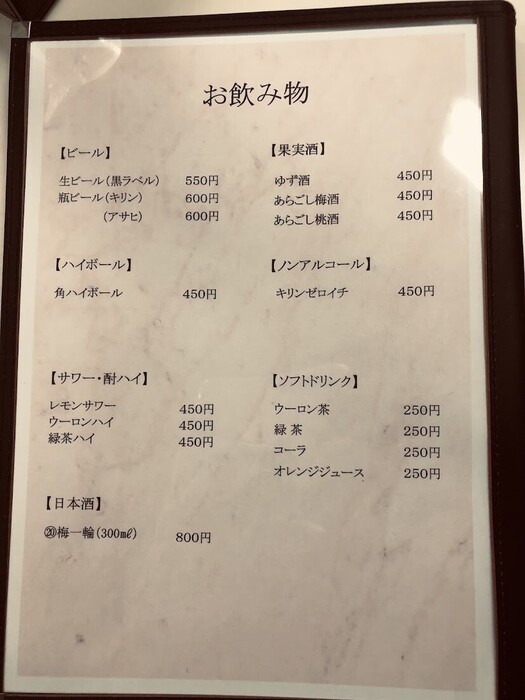 お飲み物
【ビール】
生ビール(黒ラベル) 550円
瓶ビール(キリン) 600円
(アサヒ) 600円
【果実酒】
ゆず酒 450円
あらごし梅酒 450円
あらごし桃酒 450円
【ハイボール】
角ハイボール 450円
【ノンアルコール】
キリンゼロイチ 450円
【サワー・酎ハイ】
レモンサワー 450円
ウーロンハイ 450円
緑茶ハイ 450円
【ソフトドリンク】
ウーロン茶 250円
緑 茶 250円
コーラ 250円
オレンジジュース 250円
【日本酒】
⑳梅一輪(300㎖) 800円